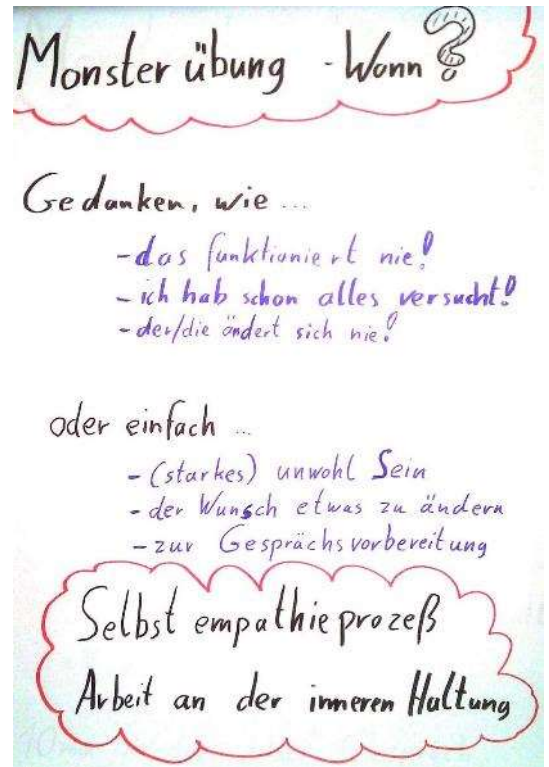 Monsterübung - Wann?
Gedanken, wie ...
- das funktioniert nie!
- ich hab schon alles versucht!
- der/die ändert sich nie!
oder einfach ...
- (starkes) unwohl Sein
- der Wunsch etwas zu ändern
- zur Gesprächsvorbereitung
Selbstempathieprozeß
Arbeit an der inneren Haltung